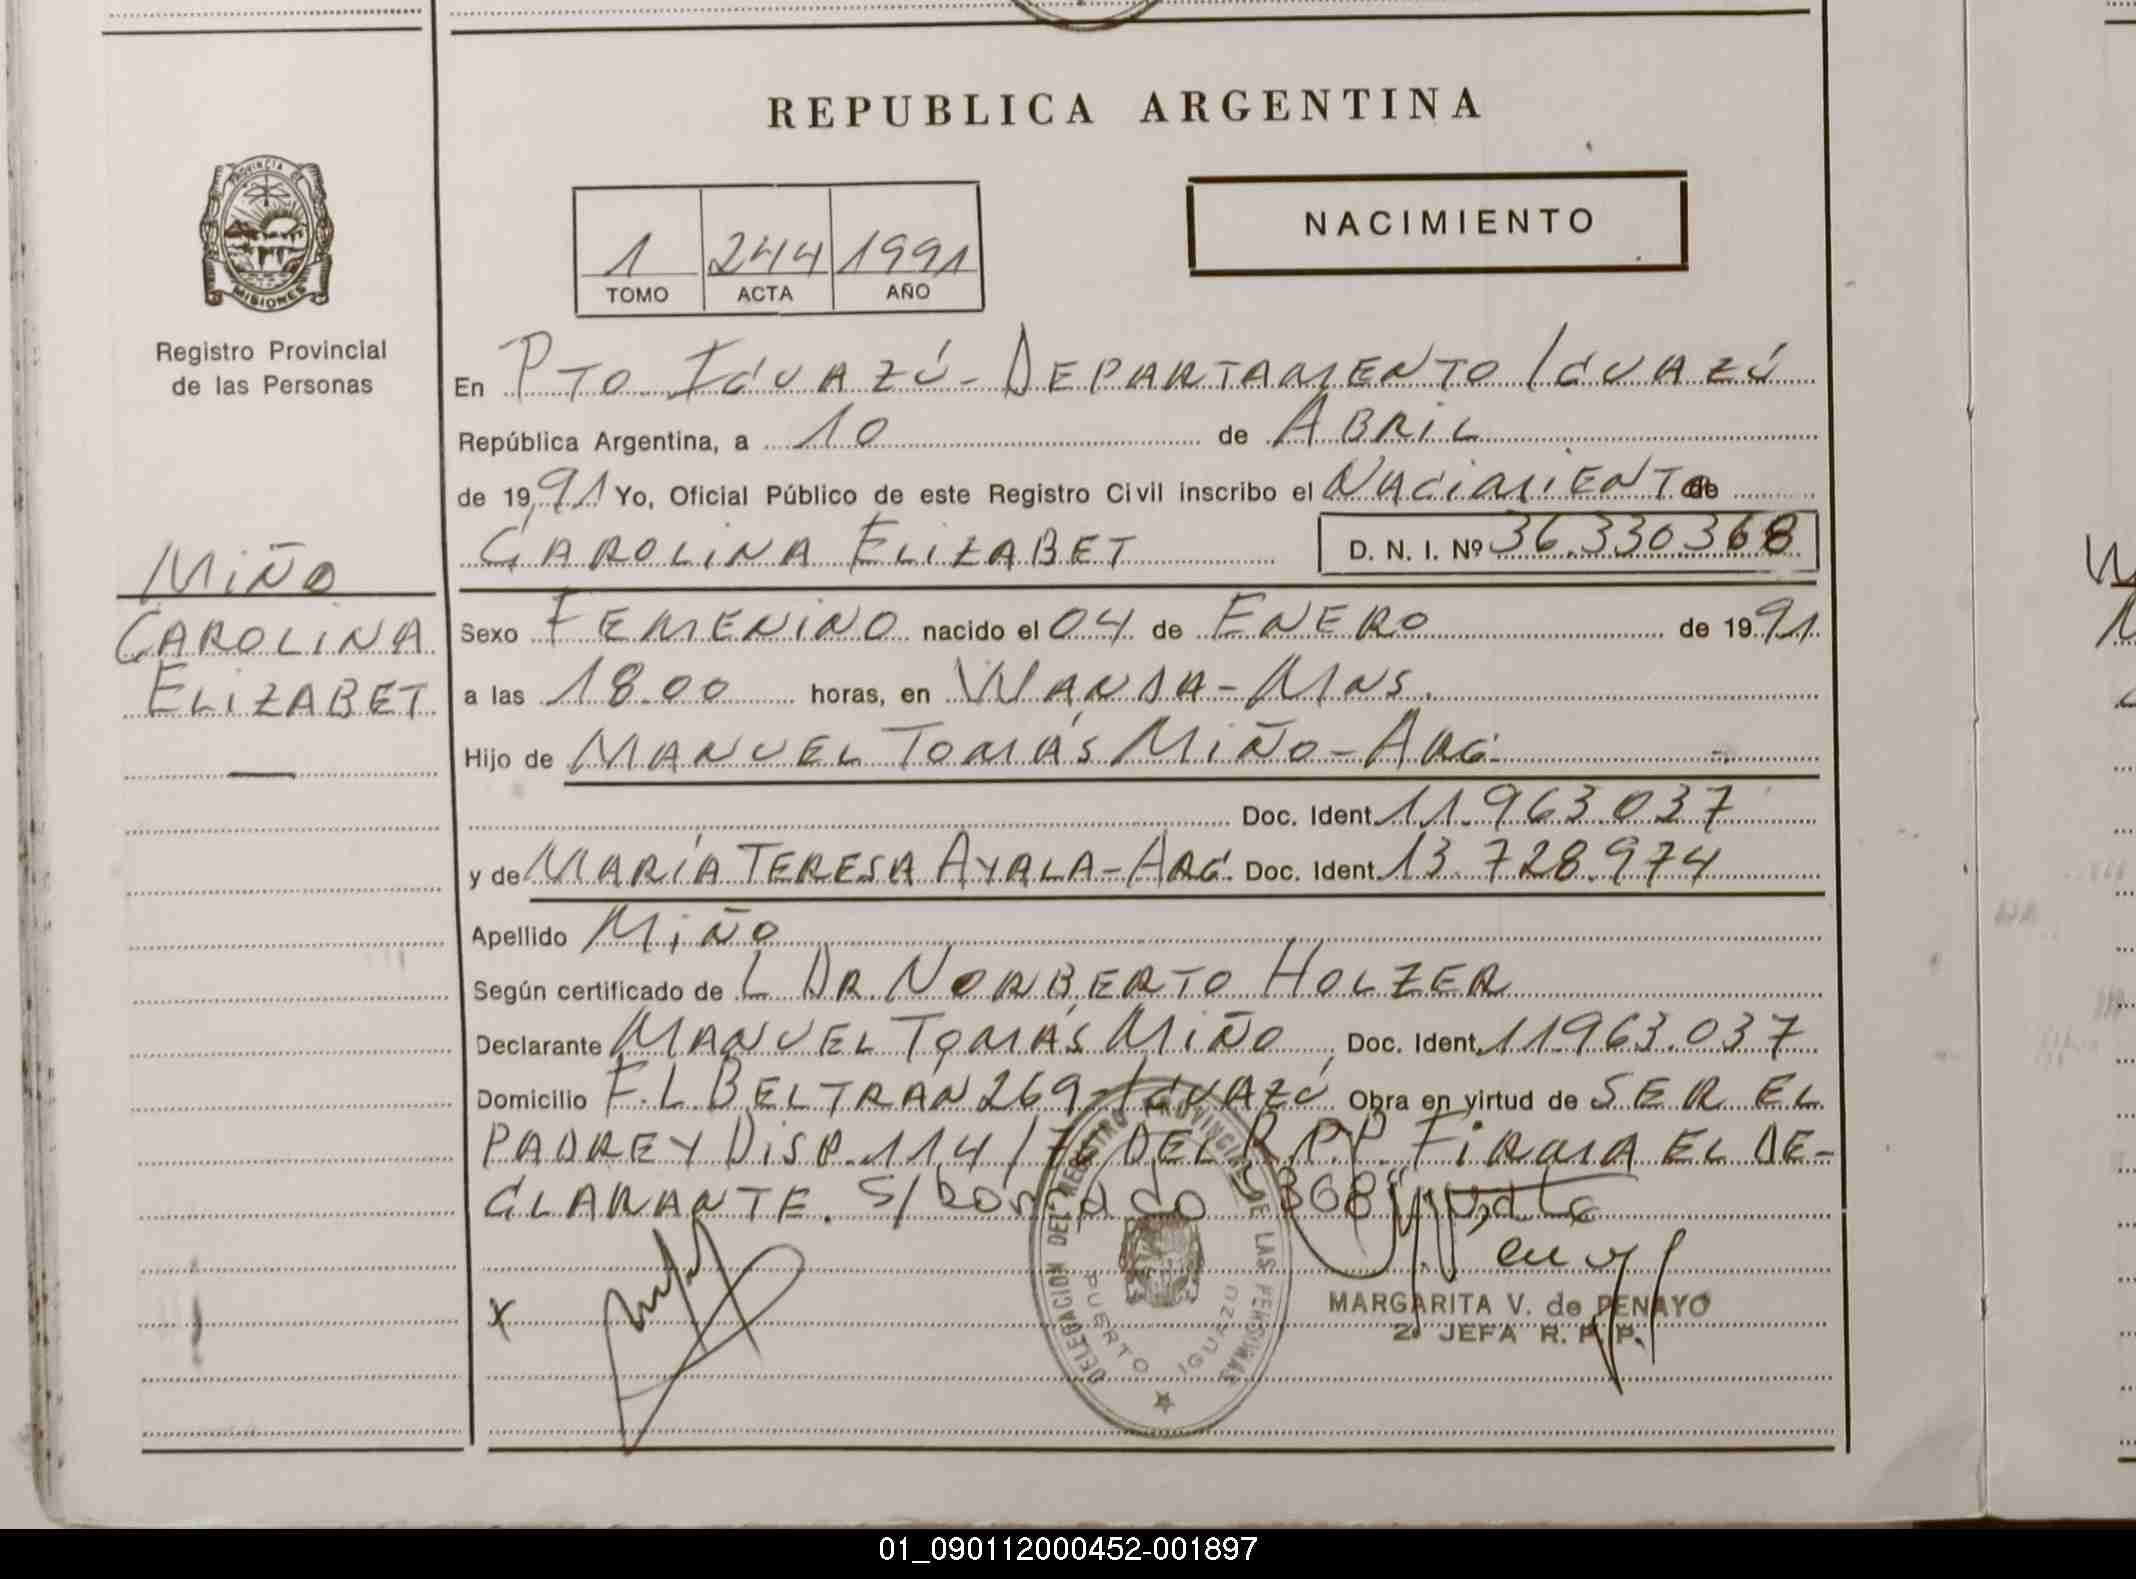 REPUBLICA ARGENTINA
NACIMIENTO
1 244 1991
TOMO ACTA AÑO
PROVINCIA DE
MISIONES
Registro Provincial
de las Personas
MIÑO
CAROLINA
ELIZABET
En PTO IGUAZÚ - DEPARTAMENTO IGUAZÚ
República Argentina, a 10 de ABRIL
de 1991 Yo, Oficial Público de este Registro Civil inscribo el NACIMIENTO de
CAROLINA ELIZABET D. N. I. Nº 36.330368
Sexo FEMENINO nacido el 04 de ENERO de 1991
a las 18.00 horas, en WANDA - MNS.
Hijo de MANUEL TOMÁS MIÑO - ARG.
Doc. Ident. 11.963.037
y de MARÍA TERESA AYALA - ARG. Doc. Ident. 13.728.974
Apellido MIÑO
Según certificado de L DR. NORBERTO HOLZER
Declarante MANUEL TOMÁS MIÑO Doc. Ident. 11963.037
Domicilio F. L BELTRÁN 269 - IGUAZÚ Obra en virtud de SER EL
PADRE Y DISP. 114/76 DEL R.P.P. FIRMA EL DE-
CLARANTE. S/ 368
x
DELEGACION DEL REGISTRO PROVINCIAL DE LAS PERSONAS
PUERTO IGUAZU
MARGARITA V. de PENAYO
2ª JEFA R. P. P.
01_090112000452-001897